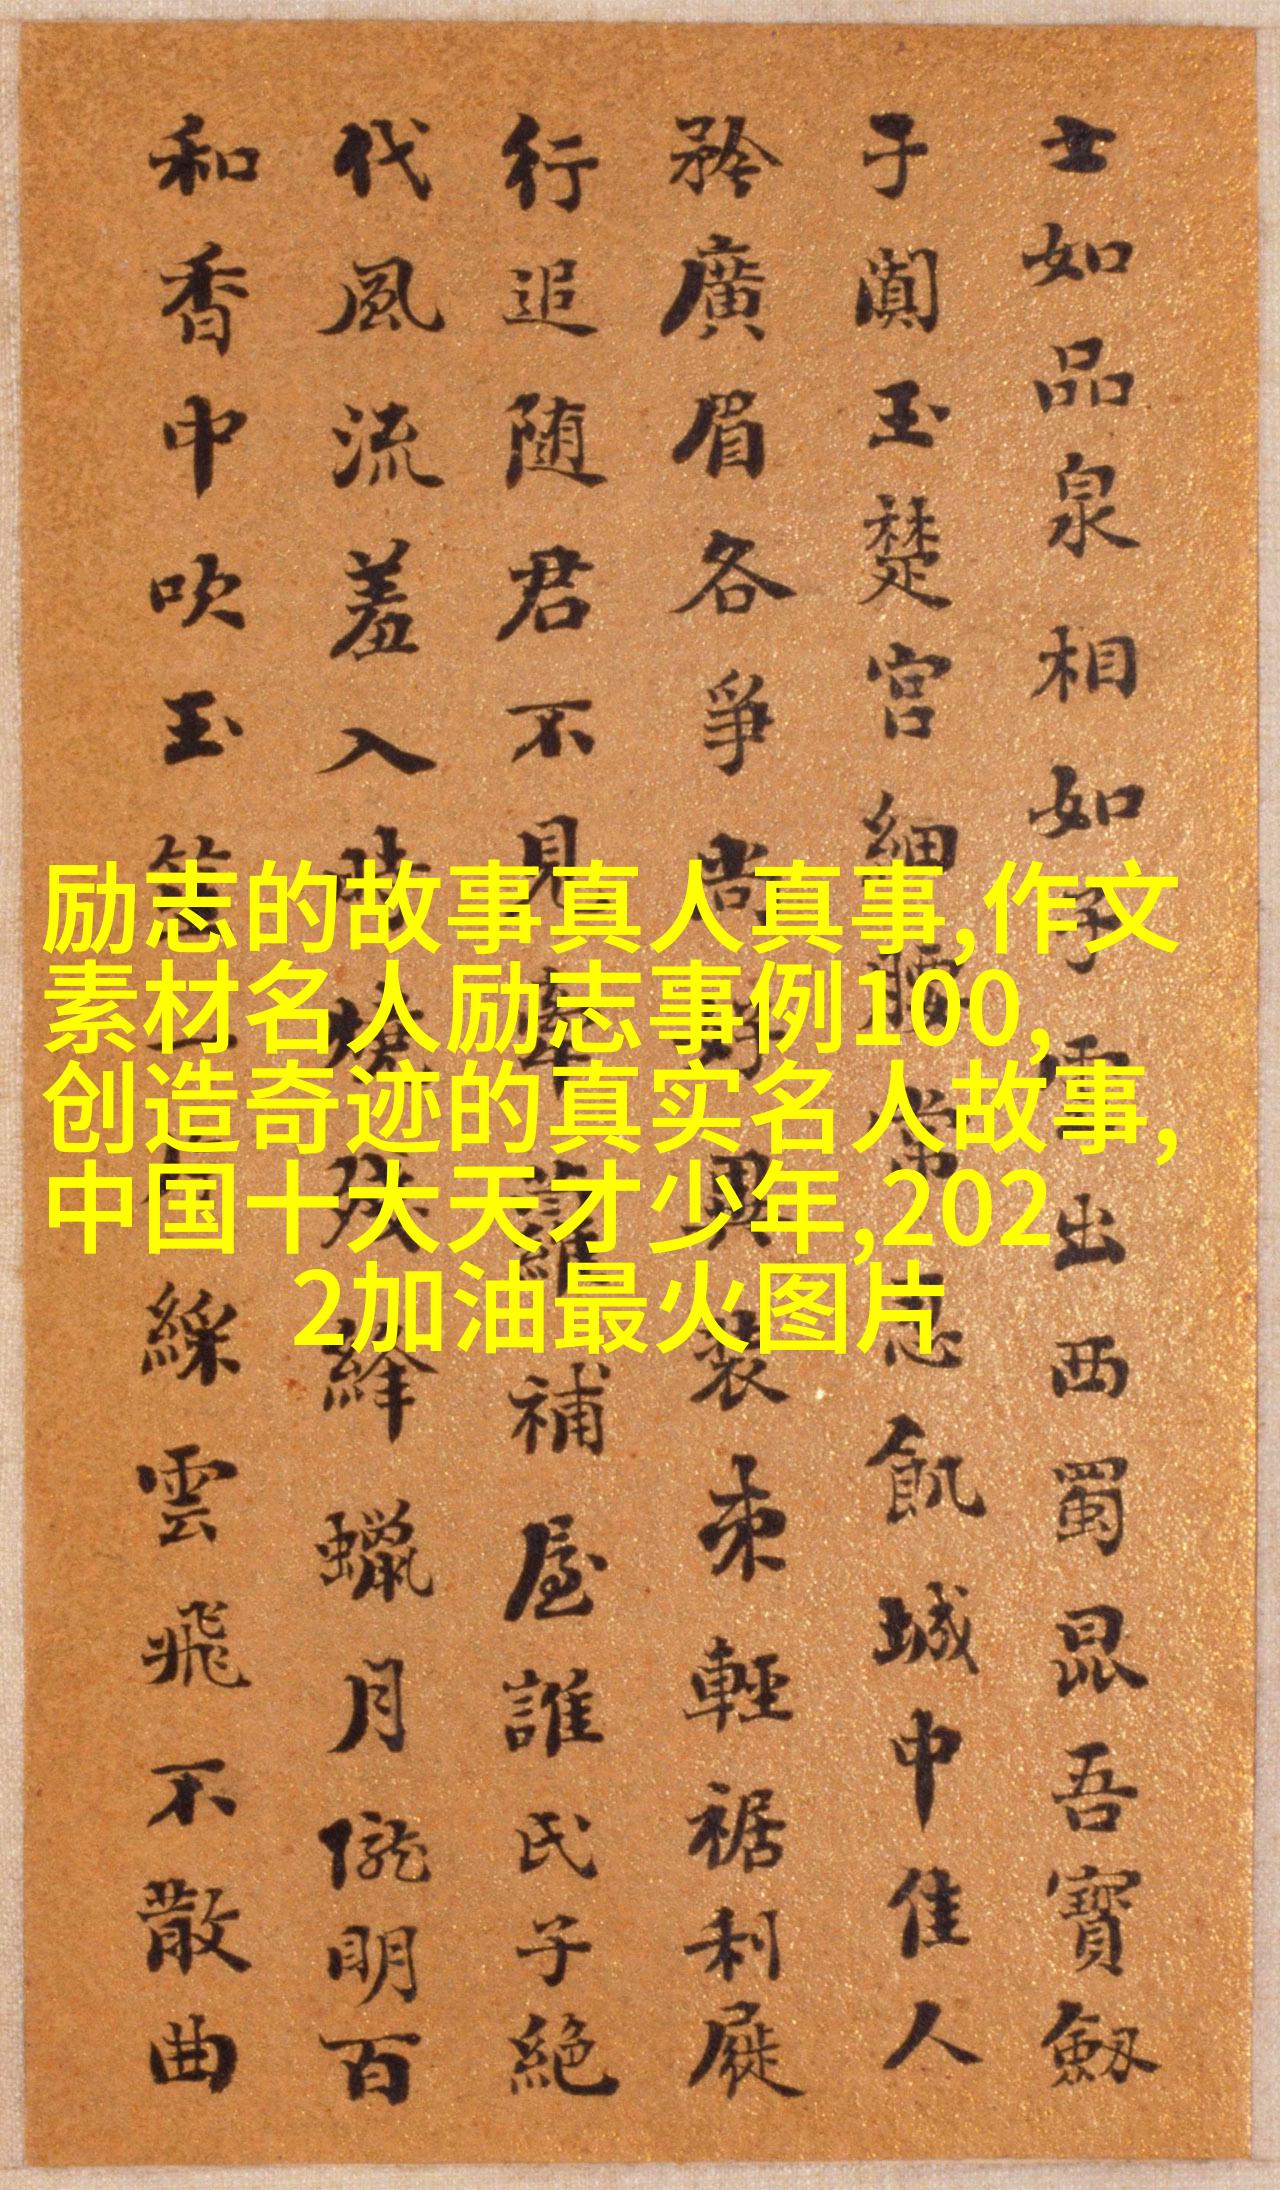 士如品泉相如子雲出西蜀昆吾寶劔
子闐玉楚宮細腰常忍飢城中佳人
矜廣眉各爭尚好異裝束輕裾利屣
行追随君不見牽蘿補屋誰氏子絕
代風流羞入時燒殘絳蠟月朧明百
和香中吹玉笙綵雲飛不散曲
励志的故事真人真事,作文
素材名人励志事例100,
创造奇迹的真实名人故事,
中国十大天才少年,202
2加油最火图片